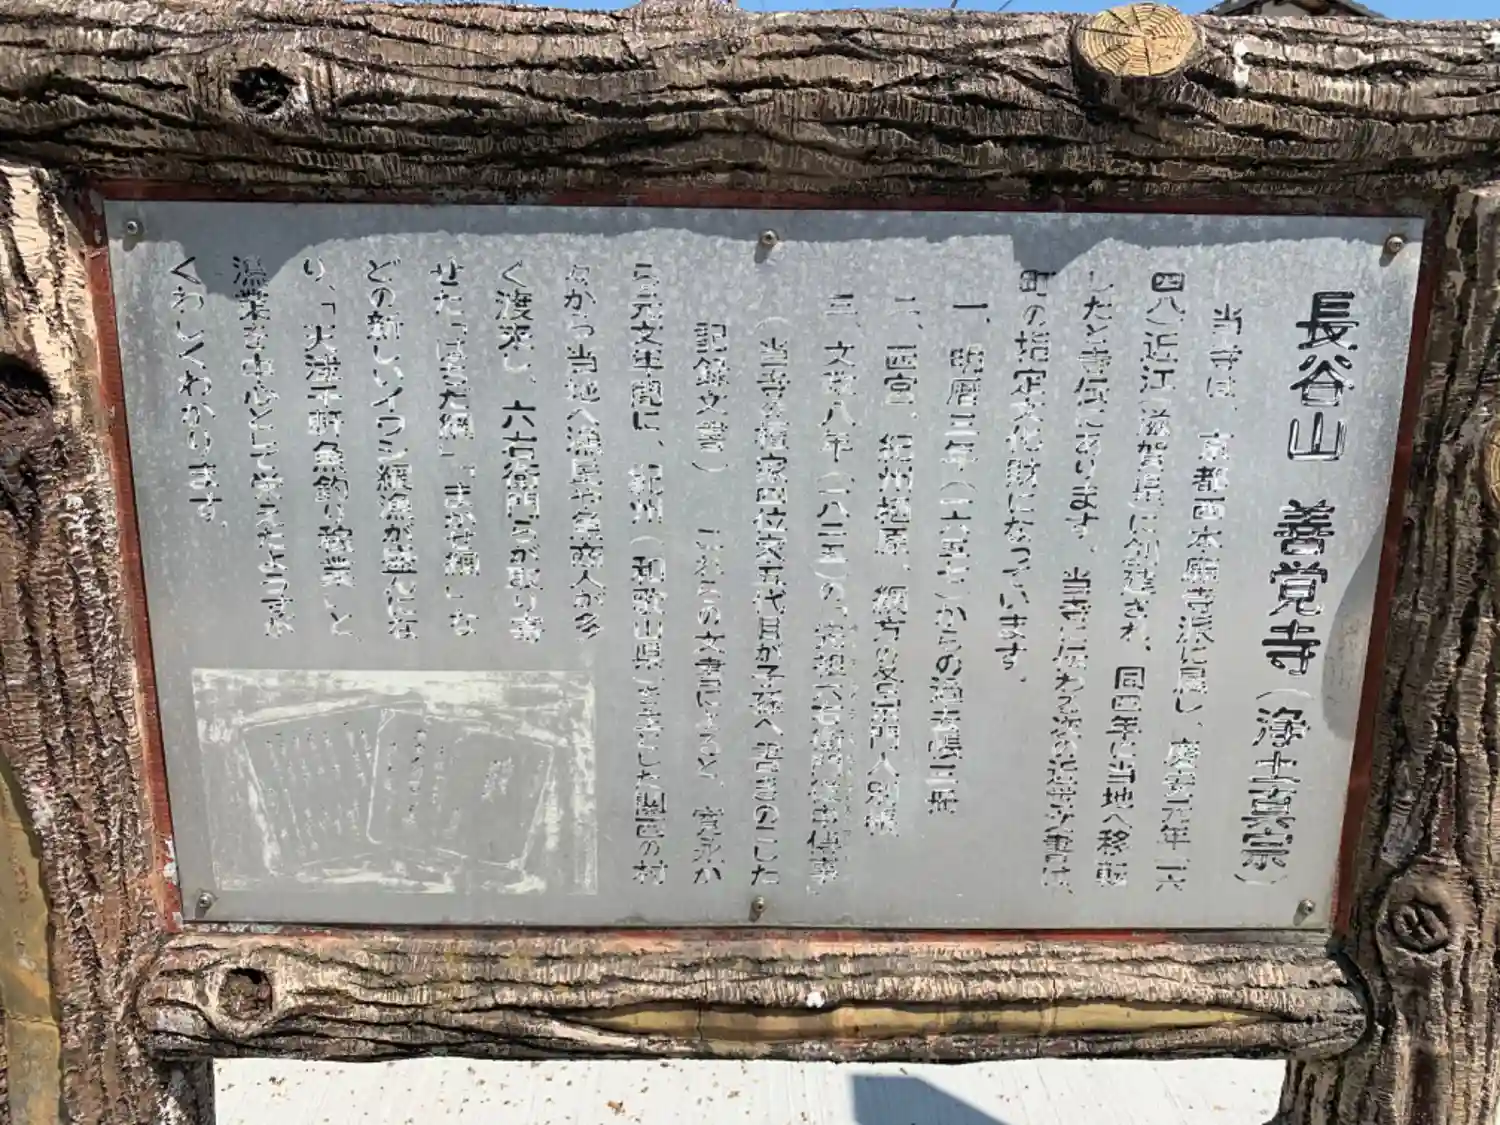 長谷山 善覚寺(浄土真宗)
当寺は、京都西本願寺派に属し、慶安元年(一六
四八)近江(滋賀県)に創建され、同四年に当地へ移転
したと寺伝にあります。当寺に伝わる次の近世文書は、
町の指定文化財になっています。
一、明暦三年(一六五七)からの過去帳三冊
二、西宮、紀州栖原、網方の
三、文政八年(一八二五)の、
(当寺
記録文書) これらの文書によると、寛永か
ら元文年間に、紀州(和歌山県)を主とした関西の村
々から当地へ漁民や魚商人が多
く渡来し、六右衛門らが取り寄
せた「はちだ網」、「まかせ網」な
どの新しいイワシ網漁が盛んにな
り、「大漁千軒魚釣り稼業」と、
漁業を中心として栄えたようすが
くわしくわかります。